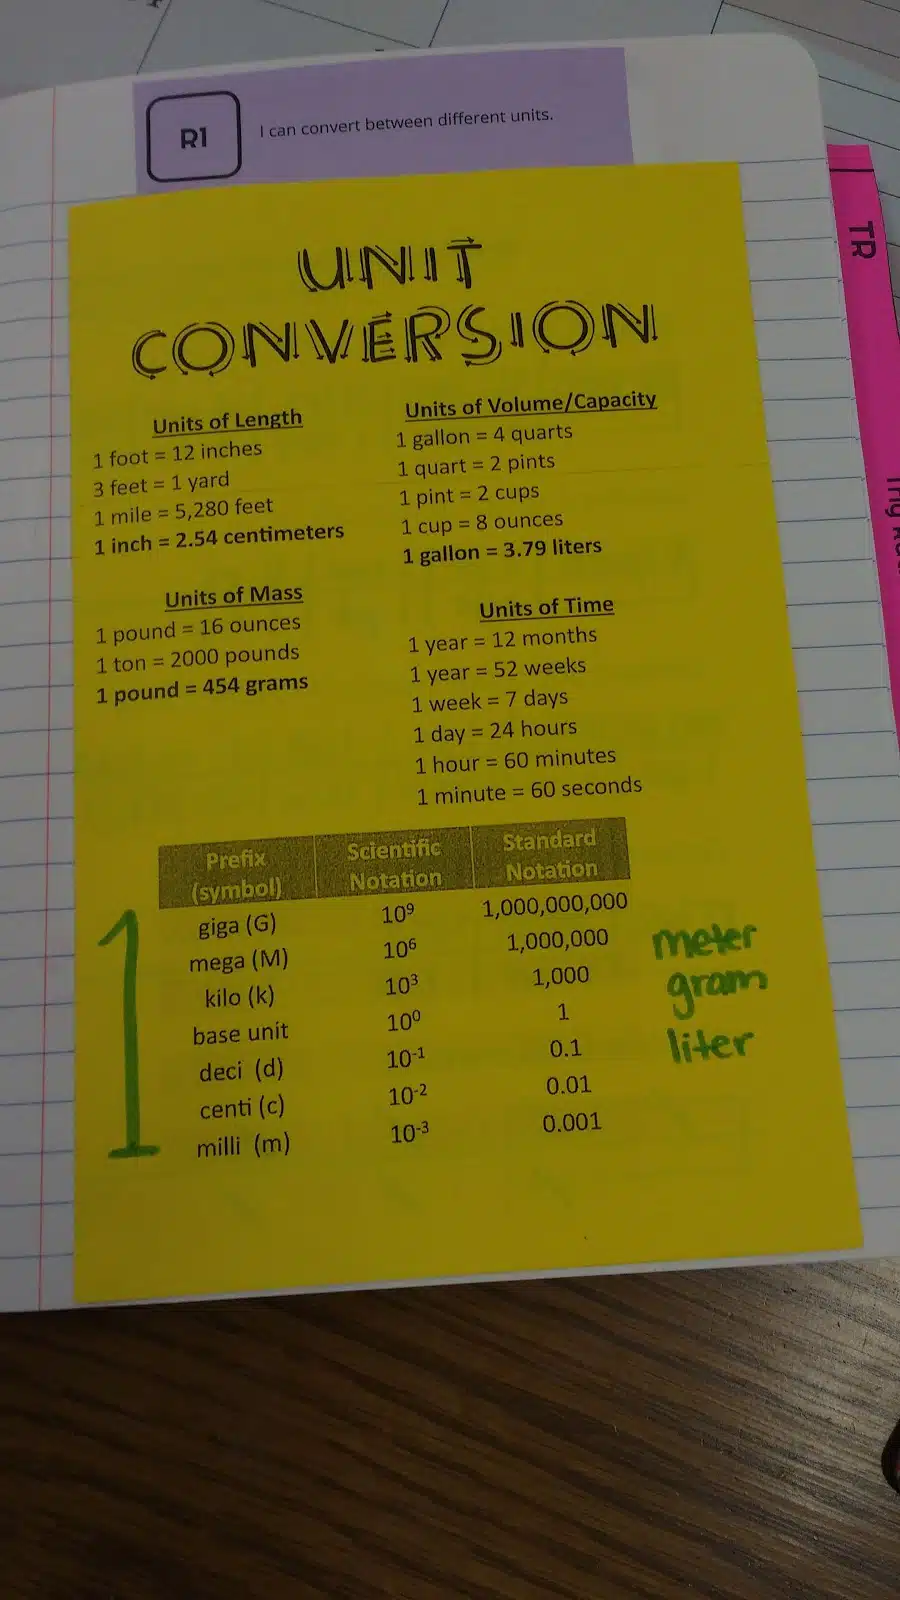 R1
I can convert between different units.
TR
UNIT
CONVERSION
Units of Length
1 foot = 12 inches
3 feet = 1 yard
1 mile = 5,280 feet
1 inch = 2.54 centimeters
Units of Volume/Capacity
1 gallon = 4 quarts
1 quart = 2 pints
1 pint = 2 cups
1 cup = 8 ounces
1 gallon = 3.79 liters
Units of Mass
1 pound = 16 ounces
1 ton = 2000 pounds
1 pound = 454 grams
Units of Time
1 year = 12 months
1 year = 52 weeks
1 week = 7 days
1 day = 24 hours
1 hour = 60 minutes
1 minute = 60 seconds
Prefix (symbol) Scientific Notation Standard Notation
giga (G) 10⁹ 1,000,000,000
mega (M) 10⁶ 1,000,000
kilo (k) 10³ 1,000
base unit 10⁰ 1
deci (d) 10⁻¹ 0.1
centi (c) 10⁻² 0.01
milli (m) 10⁻³ 0.001
1
meter
gram
liter
Trig